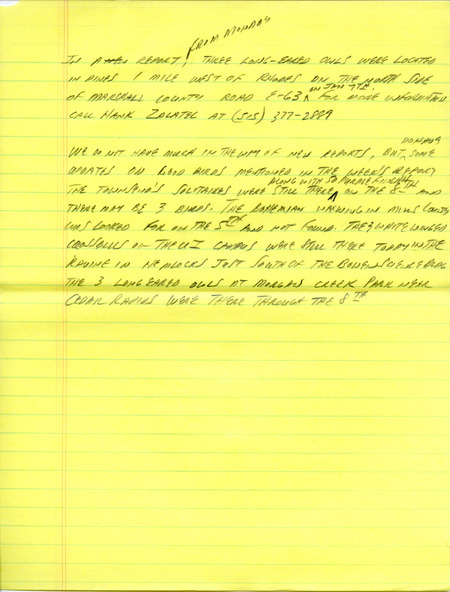 FROM MONDAY
IN A REPORT, THREE LONG-EARED OWLS WERE LOCATED
IN PINES 1 MILE WEST OF RHODES ON THE NORTH SIDE
ON JAN 7TH.
OF MARSHALL COUNTY ROAD E-63. FOR MORE INFORMATION
CALL HANK ZALATEL AT (515) 377-2889
WE DO NOT HAVE MUCH IN THE WAY OF NEW REPORTS, BUT, SOME
UPDATES ON GOOD BIRDS MENTIONED IN THE WEEK'S REPORT
ALONG WITH 50 PURPLE FINCHES
THE TOWNSEND'S SOLITAIRES WERE STILL THERE ON THE 8TH AND
THERE MAY BE 3 BIRDS. THE BOHEMIAN WAXWING IN MILLS COUNTY
WAS LOOKED FOR ON THE 5TH AND NOT FOUND. THE 3 WHITE WINGED
CROSSBILLS OF THE U I CAMPUS WERE STILL THERE TODAY IN THE
RAVINE IN HEMLOCKS JUST SOUTH OF THE BOWEN SCIENCE BLDG
THE 3 LONG EARED OWLS AT MORGAN CREEK PARK NEAR
CEDAR RAPIDS WERE THERE THROUGH THE 8TH